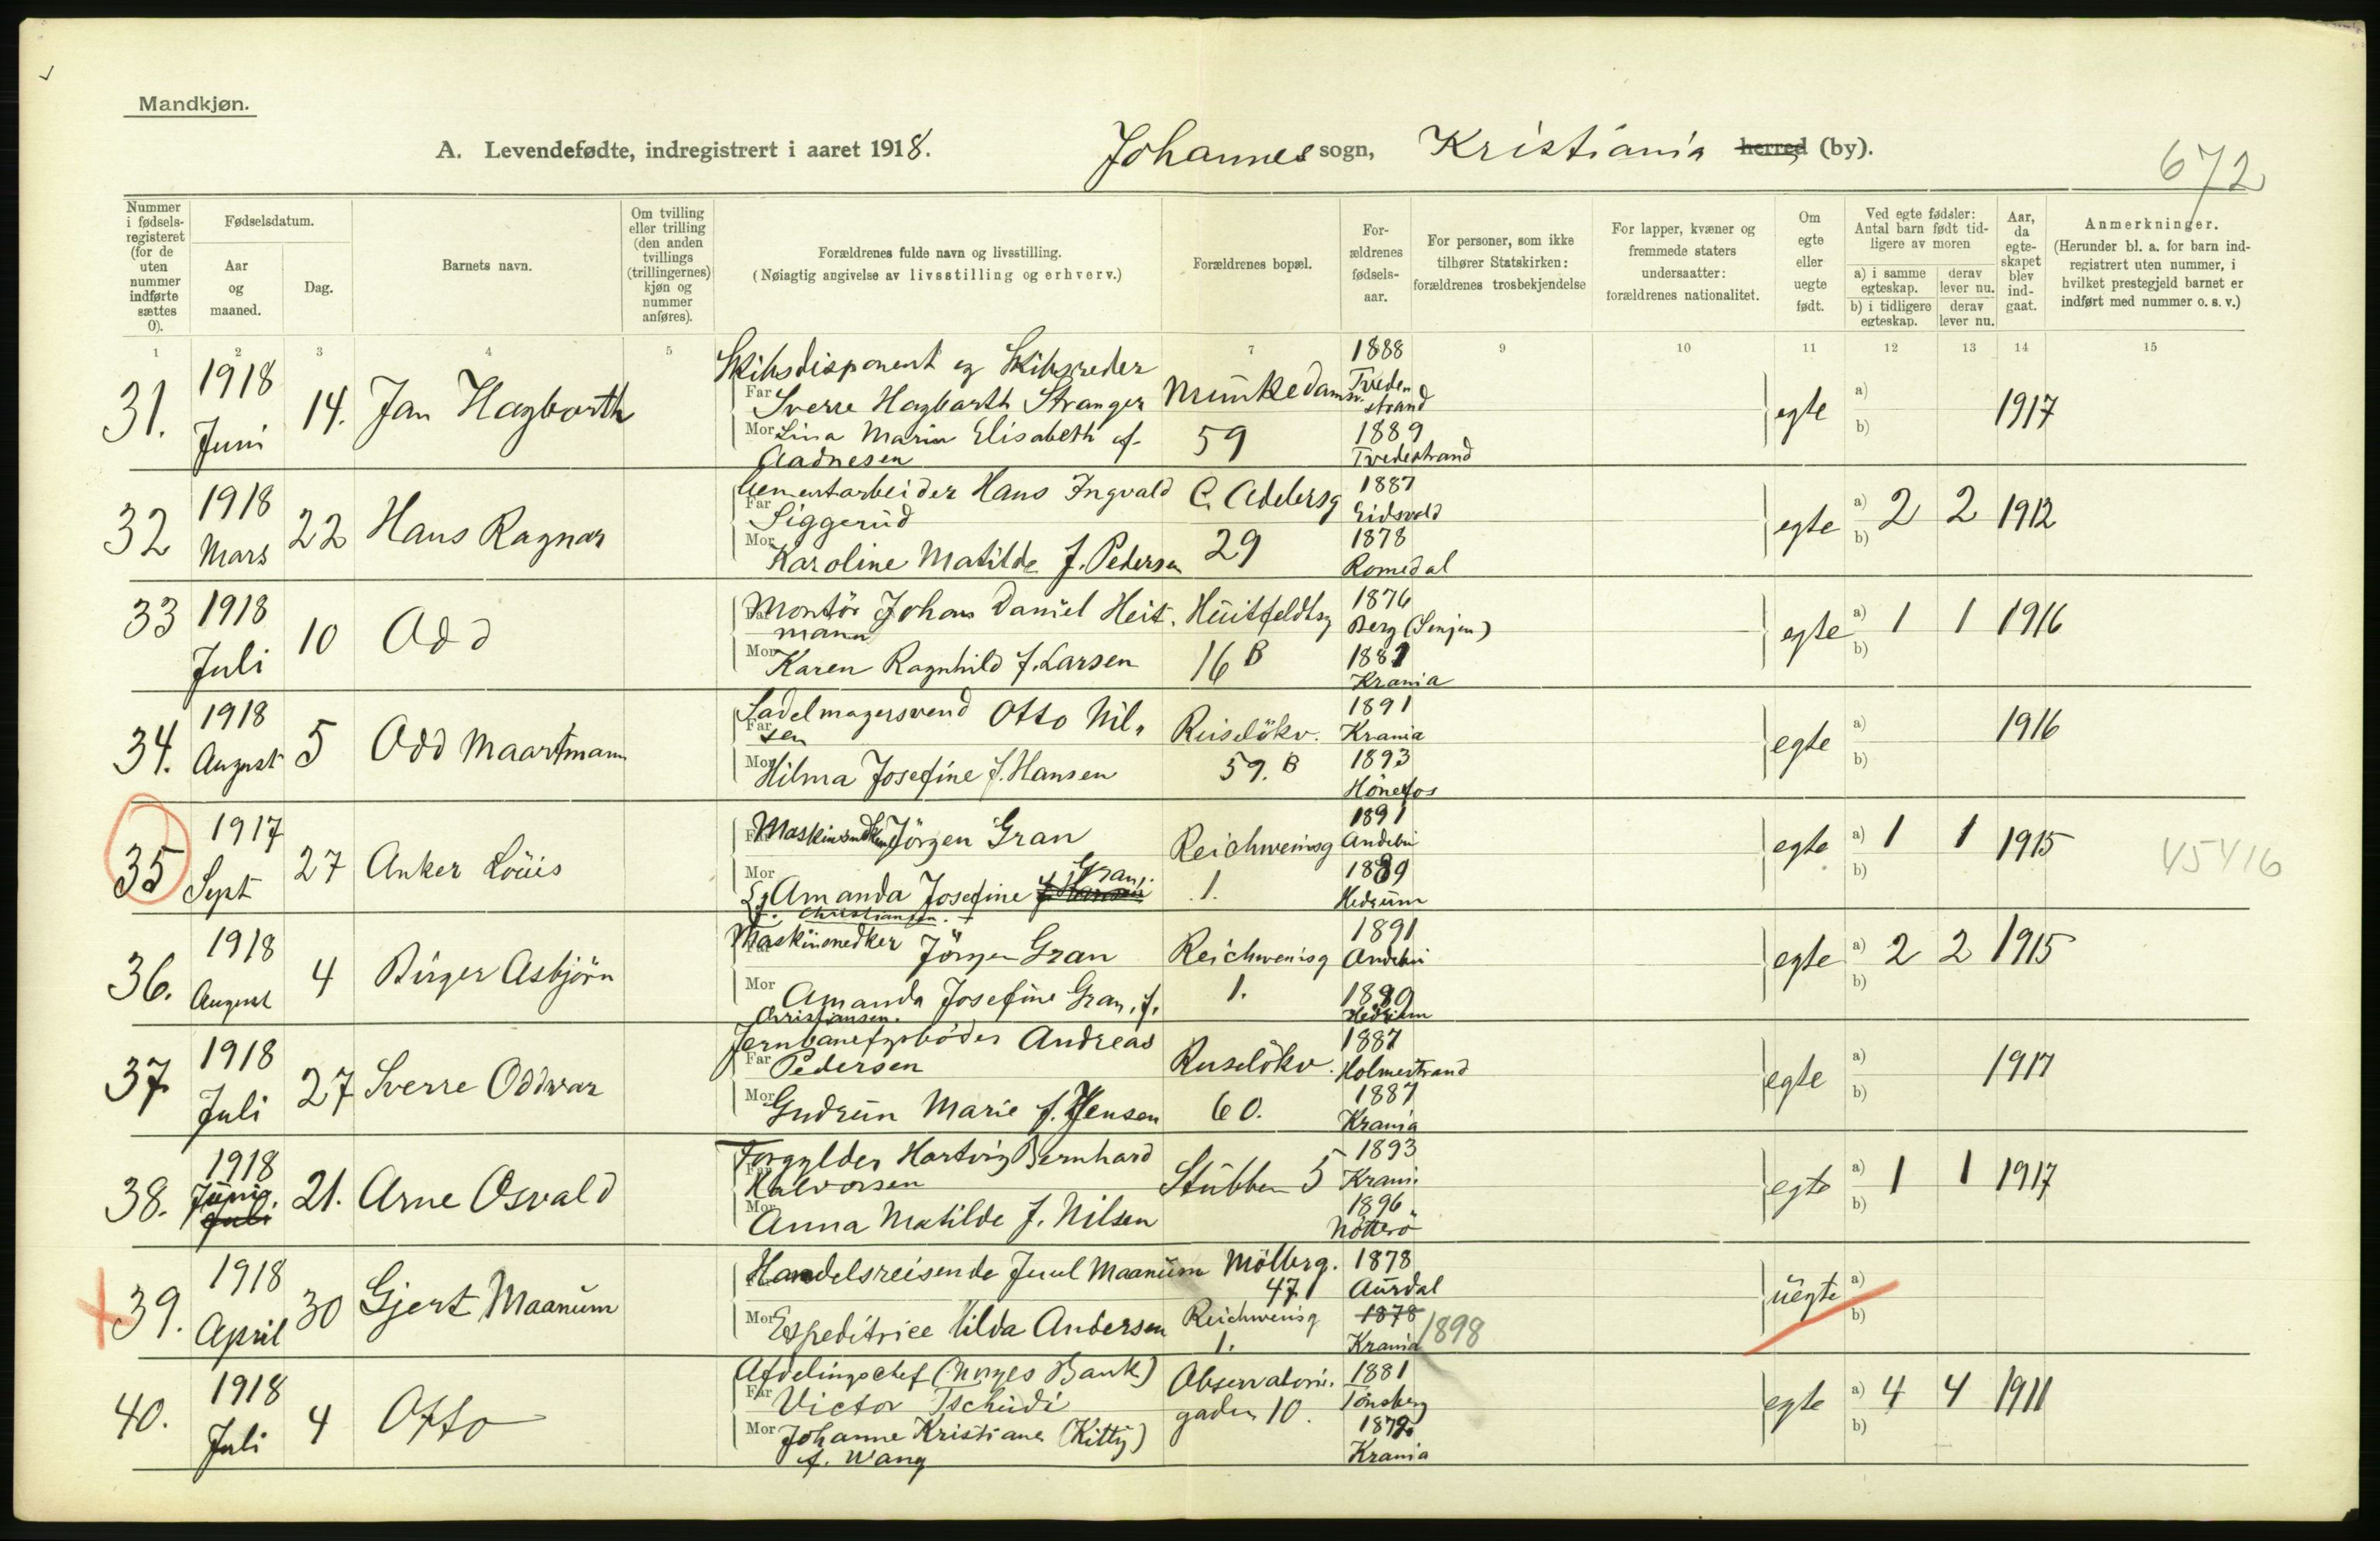 Mandkjøn.
A. Levendefødte, indregistrert i aaret 1918. Johannes sogn, Kristiania herred (by). 672
Nummer i fødselsregisteret (for de uten nummer indførte sættes 0).
Fødselsdatum.
Aar og maaned.
Dag.
Barnets navn.
Om tvilling eller trilling (den anden tvillings (trillingernes) kjøn og nummer anføres).
Forældrenes fulde navn og livsstilling.
(Nøiagtig angivelse av livsstilling og erhverv.)
Forældrenes bopæl.
Forældrenes fødselsaar.
For personer, som ikke tilhører Statskirken: forældrenes trosbekjendelse
For lapper, kvæner og fremmede staters undersaatter: forældrenes nationalitet.
Om egte eller uegte født.
Ved egte fødsler: Antal barn født tidligere av moren
a) i samme egteskap. derav lever nu.
b) i tidligere egteskap. derav lever nu.
Aar, da egteskapet blev indgaat.
Anmerkninger.
(Herunder bl. a. for barn indregistrert uten nummer, i hvilket prestegjeld barnet er indført med nummer o. s. v.)
1 2 3 4 5 7 9 10 11 12 13 14 15
31. 1918 Juni 14. Jan Hagbarth
Skibsdisponent og Skibsreder
Far Sverre Hagbarth Stranger Munkedamsv. 1888 Tvedestrand
Mor Lina Maria Elisabeth f. 59 1889
Aadnesen Tvedestrand
egte a) b) 1917
32 1918 Mars 22 Hans Ragnar
Cementarbeider Hans Ingvald C. Adelersg 1887
Far Siggerud Eidsvold
Mor Karoline Matilde f. Pedersen 29 1878 Romedal
egte a) 2 2 1912 b)
33 1918 Juli 10 Odd
Far Montör Johan Daniel Heitmann Huitfeldtsg 1876 Berg (Senjen)
Mor Karen Ragnhild f. Larsen 16 B 1881 Krania
egte a) 1 1 1916 b)
34. 1918 August 5 Odd Maartmann
Sadelmagersvend Otto Nilsen
Far Ruselökv. 1891 Krania
Mor Hilma Josefine f. Hansen 59. B 1893 Hönefos
egte a) b) 1916
35 1917 Sept 27 Anker Louis
Far Maskinsnedker Jörgen Gran Reichweinsg 1891 Andebu
Mor Amanda Josefine Gran, 1. 1889 Hedrum
f. Christiansen.
egte a) 1 1 1915 b) 45416
36. 1918 August 4 Birger Asbjörn
Far Maskinsnedker Jörgen Gran Reichweinsg 1891 Andebu
Mor Amanda Josefine Gran, f. 1. 1889 Hedrum
Christiansen.
egte a) 2 2 1915 b)
37 1918 Juli 27 Sverre Oddvar
Jernbanefyrböder Andreas
Far Pedersen Ruselökv. 1887 Holmestrand
Mor Gudrun Marie f. Jensen 60. 1887 Krania
egte a) b) 1917
38. 1918 Juni Juli 21. Arne Osvald
Forgylder Hartvig Bernhard
Far Halvorsen Stubben 5 1893 Krani.
Mor Anna Matilde f. Nilsen 1896 Nötterö
egte a) 1 1 1917 b)
39. 1918 April 30 Gjert Maanum
Far Handelsreisende Juul Maanum Mölberg. 47 1878 Aurdal
Mor Expeditrice Hilda Andersen Reichweinsg 1. 1878 Krania 1898
uegte a) b)
40. 1918 Juli 4 Otto
Afdelingschef (Norges Bank) Observatorie- 1881
Far Victor Tschudi gaden 10. Tönsberg
Mor Johanne Kristiane (Kitty) 1879
f. Wang Krania
egte a) 4 4 1911 b)